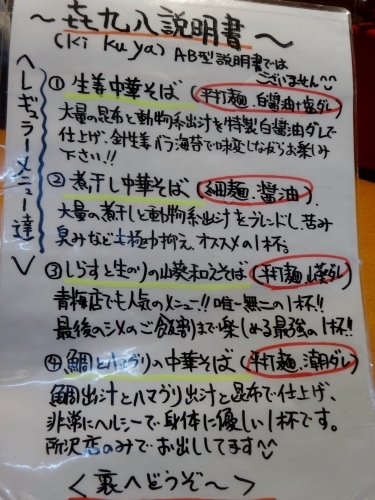 ～㐂九八説明書～
(Ki Ku ya) AB型説明書では
ございません^^
＜レギュラーメニュー達＞
① 生姜中華そば (平打麺、白醤油+塩ダレ)
大量の昆布と動物系出汁を特製白醤油ダレで
仕上げ、針生姜、バラ海苔で味変しながらお楽しみ
下さい!!
② 煮干し中華そば (細麺、醤油)
大量の煮干しと動物系出汁をブレンドし、苦み
臭みなどを極力抑え、オススメの1杯。
③ しらすと生のりの山葵和えそば (平打麺、山葵ダレ)
青梅店でも人気のメニュー!! 唯一無二の1杯!!
最後のシメのご飯割まで楽しめる最強の1杯!!
④ 鯛とハマグリの中華そば (平打麺、潮ダレ)
鯛出汁とハマグリ出汁と昆布で仕上げ、
非常にヘルシーで身体に優しい1杯です。
所沢店のみでお出ししてます^^
＜裏へどうぞ～＞